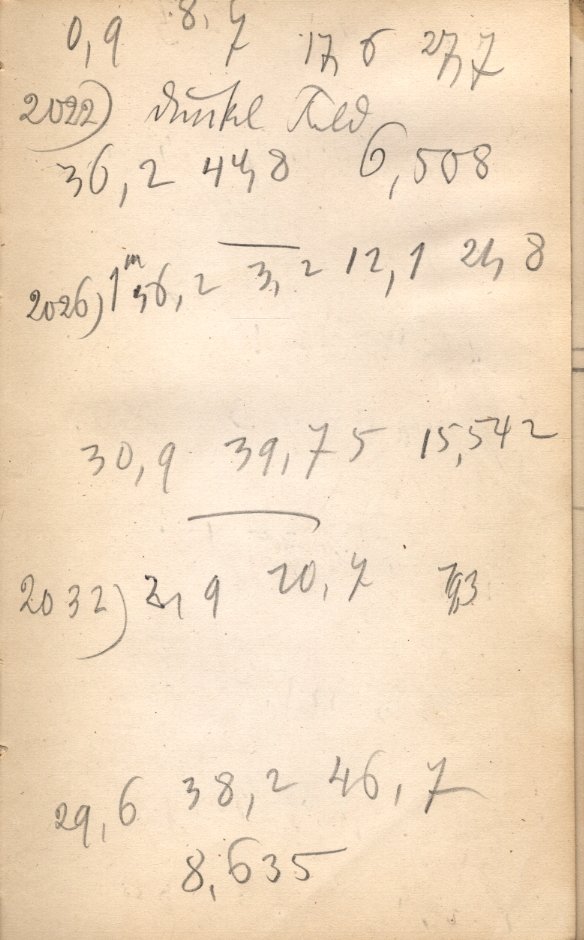 0,9 8,7 17,6 27,7
2022) dunkl Feld
36,2 44,8 6,508
2026) 1ᵐ 56,2 3,2 12,1 21,8
30,9 39,75 15,542
2032) 2,9 20,7
29,6 38,2 46,7
8,635